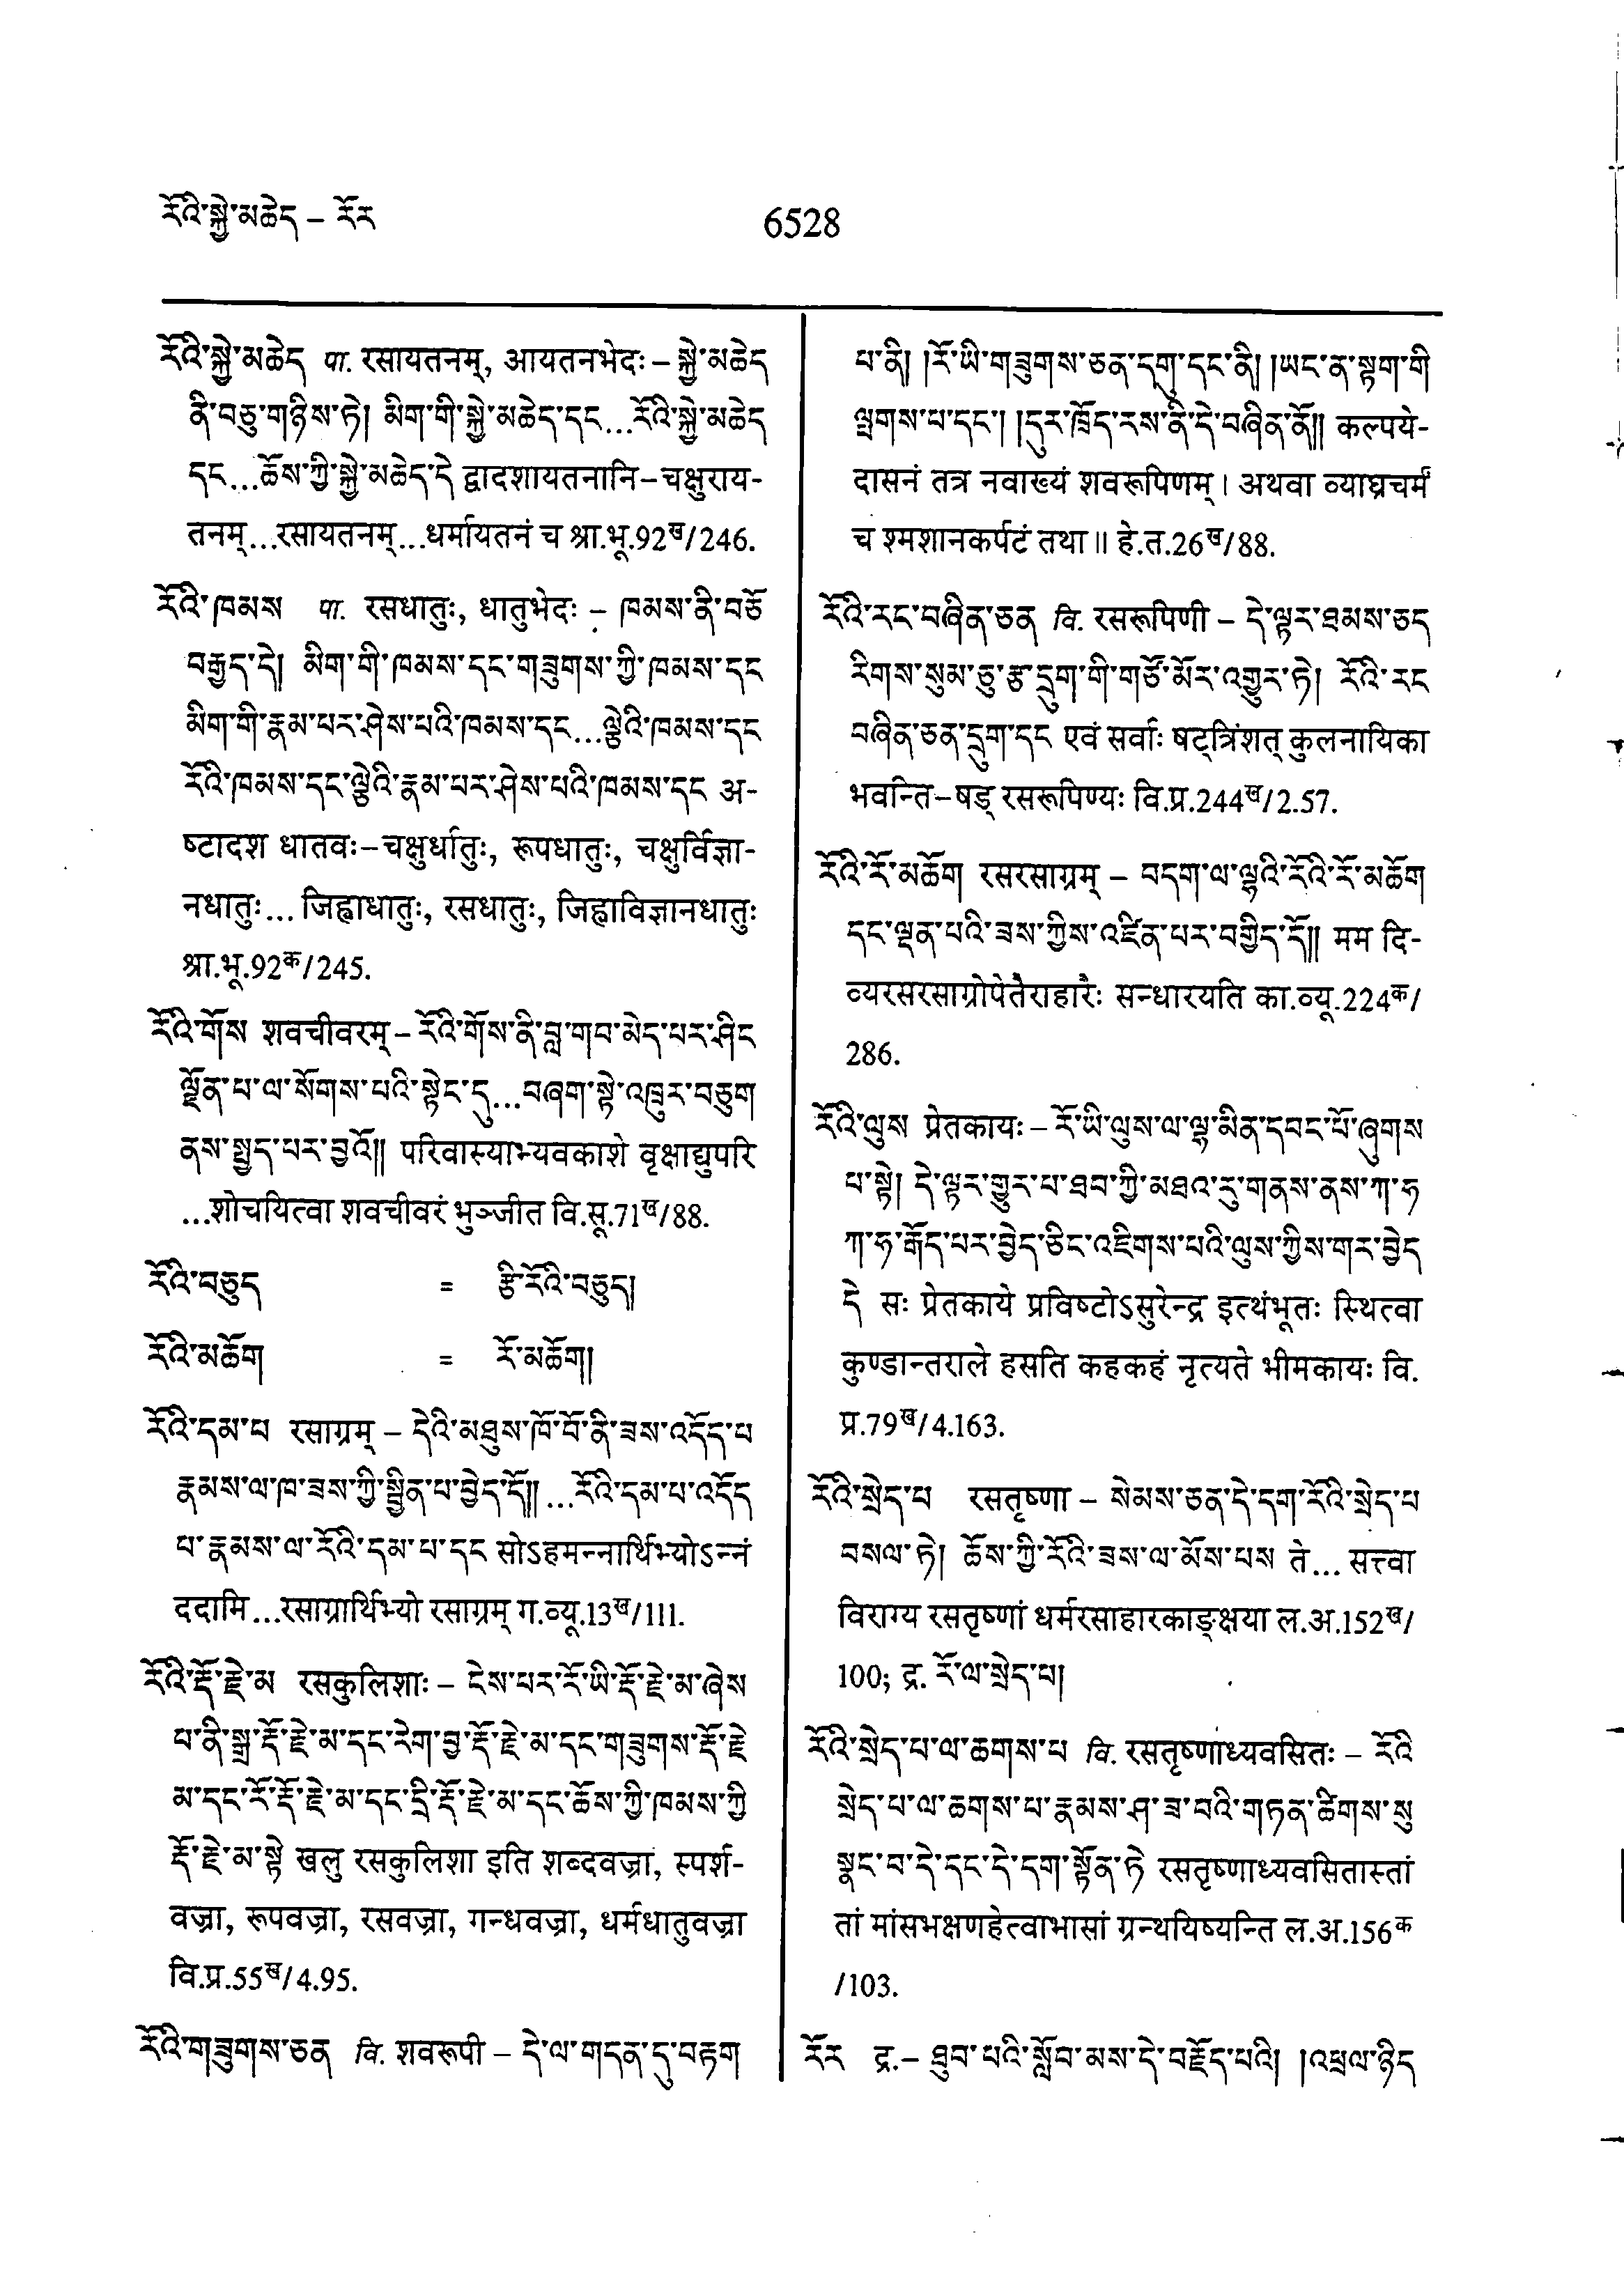 རོའི་སྐྱེ་མཆེད – རོར
6528
རོའི་སྐྱེ་མཆེད पा. रसायतनम्, आयतनभेदः – སྐྱེ་མཆེད
ནི་བཅུ་གཉིས་ཏེ། མིག་གི་སྐྱེ་མཆེད་དང...རོའི་སྐྱེ་མཆེད
དང...ཆོས་ཀྱི་སྐྱེ་མཆེད་དེ द्वादशायतनानि–चक्षुराय-
तनम्...रसायतनम्...धर्मायतनं च श्रा.भू.92ख/246.
རོའི་ཁམས पा. रसधातुः, धातुभेदः – ཁམས་ནི་བཅོ
བརྒྱད་དེ། མིག་གི་ཁམས་དང་གཟུགས་ཀྱི་ཁམས་དང
མིག་གི་རྣམ་པར་ཤེས་པའི་ཁམས་དང...ལྕེའི་ཁམས་དང
རོའི་ཁམས་དང་ལྕེའི་རྣམ་པར་ཤེས་པའི་ཁམས་དང अ-
ष्टादश धातवः–चक्षुर्धातुः, रूपधातुः, चक्षुर्विज्ञा-
नधातुः... जिह्वाधातुः, रसधातुः, जिह्वाविज्ञानधातुः
श्रा.भू.92क/245.
རོའི་གོས शवचीवरम् – རོའི་གོས་ནི་བླ་གབ་མེད་པར་ཤིང
ལྗོན་པ་ལ་སོགས་པའི་སྟེང་དུ...བཞག་སྟེ་འཁྲུར་བཅུག
ནས་སྤྱད་པར་བྱའོ།། परिवास्याभ्यवकाशे वृक्षाद्युपरि
...शोचयित्वा शवचीवरं भुञ्जीत वि.सू.71ख/88.
རོའི་བཅུད = རྩི་རོའི་བཅུད།
རོའི་མཆོག = རོ་མཆོག།
རོའི་དམ་པ रसाग्रम् – དེའི་མཐུས་ཁོ་བོ་ནི་ཟས་འདོད་པ
རྣམས་ལ་ཁ་ཟས་ཀྱི་སྦྱིན་པ་བྱེད་དོ།།...རོའི་དམ་པ་འདོད
པ་རྣམས་ལ་རོའི་དམ་པ་དང सोऽहमन्नार्थिभ्योऽन्नं
ददामि ...रसाग्रार्थिभ्यो रसाग्रम् ग.व्यू.13ख/111.
རོའི་རྡོ་རྗེ་མ रसकुलिशाः – ངེས་པར་རོ་ཡི་རྡོ་རྗེ་མ་ཞེས
པ་ནི་སྒྲ་རྡོ་རྗེ་མ་དང་རེག་བྱ་རྡོ་རྗེ་མ་དང་གཟུགས་རྡོ་རྗེ
མ་དང་རོ་རྡོ་རྗེ་མ་དང་དྲི་རྡོ་རྗེ་མ་དང་ཆོས་ཀྱི་ཁམས་ཀྱི
རྡོ་རྗེ་མ་སྟེ खलु रसकुलिशा इति शब्दवज्रा, स्पर्श-
वज्रा, रूपवज्रा, रसवज्रा, गन्धवज्रा, धर्मधातुवज्रा
वि.प्र.55ख/4.95.
རོའི་གཟུགས་ཅན वि. शवरूपी – དེ་ལ་གདན་དུ་བརྟག
པ་ནི། །རོ་ཡི་གཟུགས་ཅན་དགུ་དང་ནི། །ཡང་ན་སྟག་གི
ལྤགས་པ་དང་། །དུར་ཁྲོད་རས་ནི་དེ་བཞིན་ནོ།། कल्पये-
दासनं तत्र नवाख्यं शवरूपिणम्। अथवा व्याघ्रचर्मं
च श्मशानकर्पटं तथा॥ हे.त.26ख/88.
རོའི་རང་བཞིན་ཅན वि. रसरूपिणी – དེ་ལྟར་ཐམས་ཅད
རིགས་སུམ་ཅུ་རྩ་དྲུག་གི་གཙོ་མོར་འགྱུར་ཏེ། རོའི་རང
བཞིན་ཅན་དྲུག་དང एवं सर्वाः षट्त्रिंशत् कुलनायिका
भवन्ति–षड् रसरूपिण्यः वि.प्र.244ख/2.57.
རོའི་རོ་མཆོག रसरसाग्रम् – བདག་ལ་ལྷའི་རོའི་རོ་མཆོག
དང་ལྡན་པའི་ཟས་ཀྱིས་འཛིན་པར་བགྱིད་དོ།། मम दि-
व्यरसरसाग्रोपेतैराहारैः सन्धारयति का.व्यू.224क/
286.
རོའི་ལུས प्रेतकायः – རོ་ཡི་ལུས་ལ་ལྷ་མིན་དབང་པོ་ཞུགས
པ་སྟེ། དེ་ལྟར་གྱུར་པ་ཐབ་ཀྱི་མཐའ་རུ་གནས་ནས་ཀ་ཧ
ཀ་ཧ་རྒོད་པར་བྱེད་ཅིང་འཇིགས་པའི་ལུས་ཀྱིས་གར་བྱེད
དེ सः प्रेतकाये प्रविष्टोऽसुरेन्द्र इत्थंभूतः स्थित्वा
कुण्डान्तराले हसति कहकहं नृत्यते भीमकायः वि.
प्र.79ख/4.163.
རོའི་སྲེད་པ रसतृष्णा – སེམས་ཅན་དེ་དག་རོའི་སྲེད་པ
བསལ་ཏེ། ཆོས་ཀྱི་རོའི་ཟས་ལ་མོས་པས ते... सत्त्वा
विराग्य रसतृष्णां धर्मरसाहारकाङ्क्षया ल.अ.152ख/
100; द्र. རོ་ལ་སྲེད་པ།
རོའི་སྲེད་པ་ལ་ཆགས་པ वि. रसतृष्णाध्यवसितः – རོའི
སྲེད་པ་ལ་ཆགས་པ་རྣམས་ཤ་ཟ་བའི་གཏན་ཚིགས་སུ
སྣང་བ་དེ་དང་དེ་དག་སྟོན་ཏེ रसतृष्णाध्यवसितास्तां
तां मांसभक्षणहेत्वाभासां ग्रन्थयिष्यन्ति ल.अ.156क
/103.
རོར द्र.– ཐུབ་པའི་སློབ་མས་དེ་བརྗོད་པའི། །འཕྲལ་ཉིད